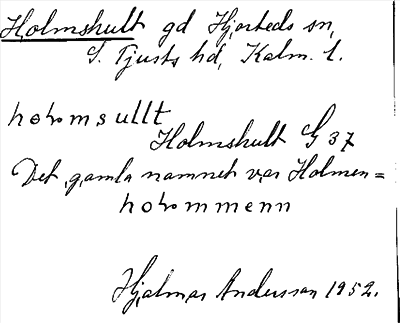 Holmshult gd Hjorteds sn,
S. Tjusts hd, Kalm. l.
holomsullt
Holmshult G 37
Det gamla namnet var Holmen=
holommenn
Hjalmar Andersson 1952.